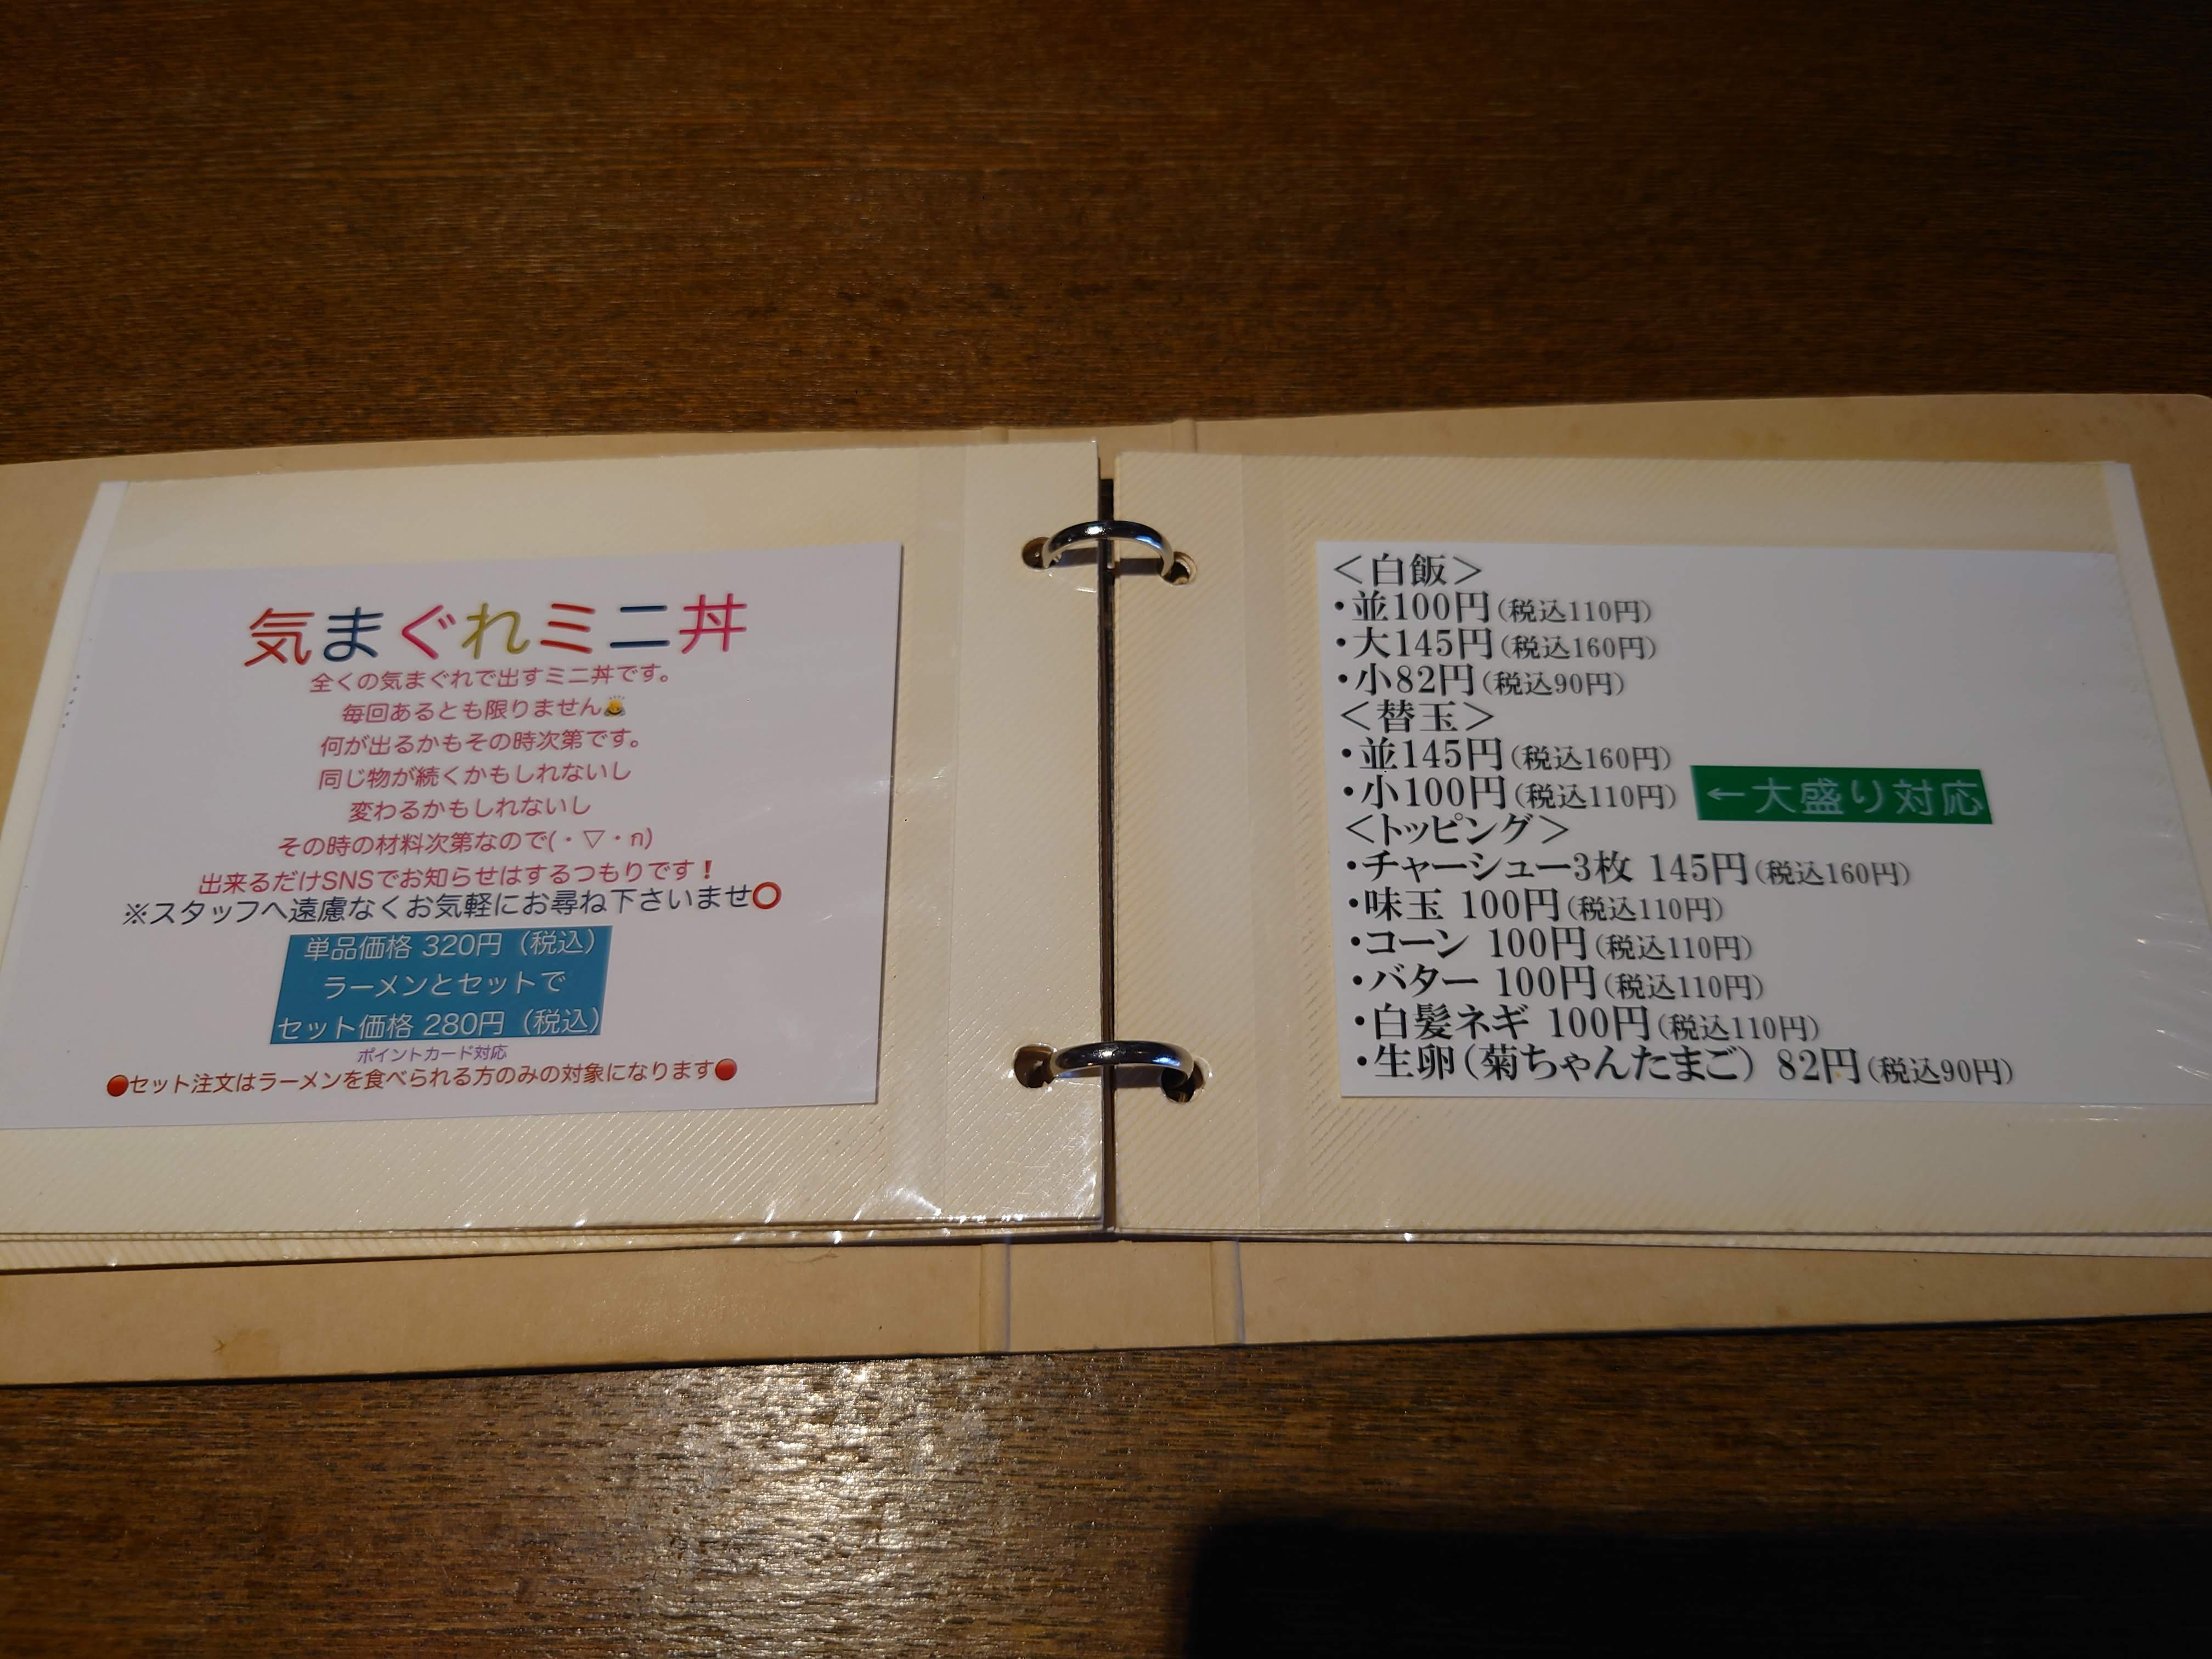 気まぐれミニ丼
全くの気まぐれで出すミニ丼です。
毎回あるとも限りません🙇
何が出るかもその時次第です。
同じ物が続くかもしれないし
変わるかもしれないし
その時の材料次第なので(・▽・ก)
出来るだけSNSでお知らせはするつもりです！
※スタッフへ遠慮なくお気軽にお尋ね下さいませ⭕
単品価格 320円（税込）
ラーメンとセットで
セット価格 280円（税込）
ポイントカード対応
🔴セット注文はラーメンを食べられる方のみの対象になります🔴
＜白飯＞
・並100円(税込110円)
・大145円(税込160円)
・小82円(税込90円)
＜替玉＞
・並145円(税込160円)
・小100円(税込110円) ←大盛り対応
＜トッピング＞
・チャーシュー3枚 145円(税込160円)
・味玉 100円(税込110円)
・コーン 100円(税込110円)
・バター 100円(税込110円)
・白髪ネギ 100円(税込110円)
・生卵(菊ちゃんたまご) 82円(税込90円)